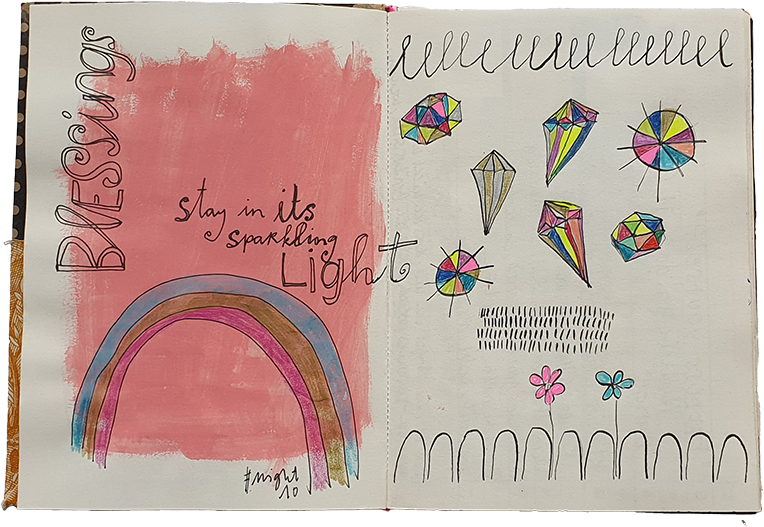 BlESSings
stay in its
sparkling
Light
#night
10